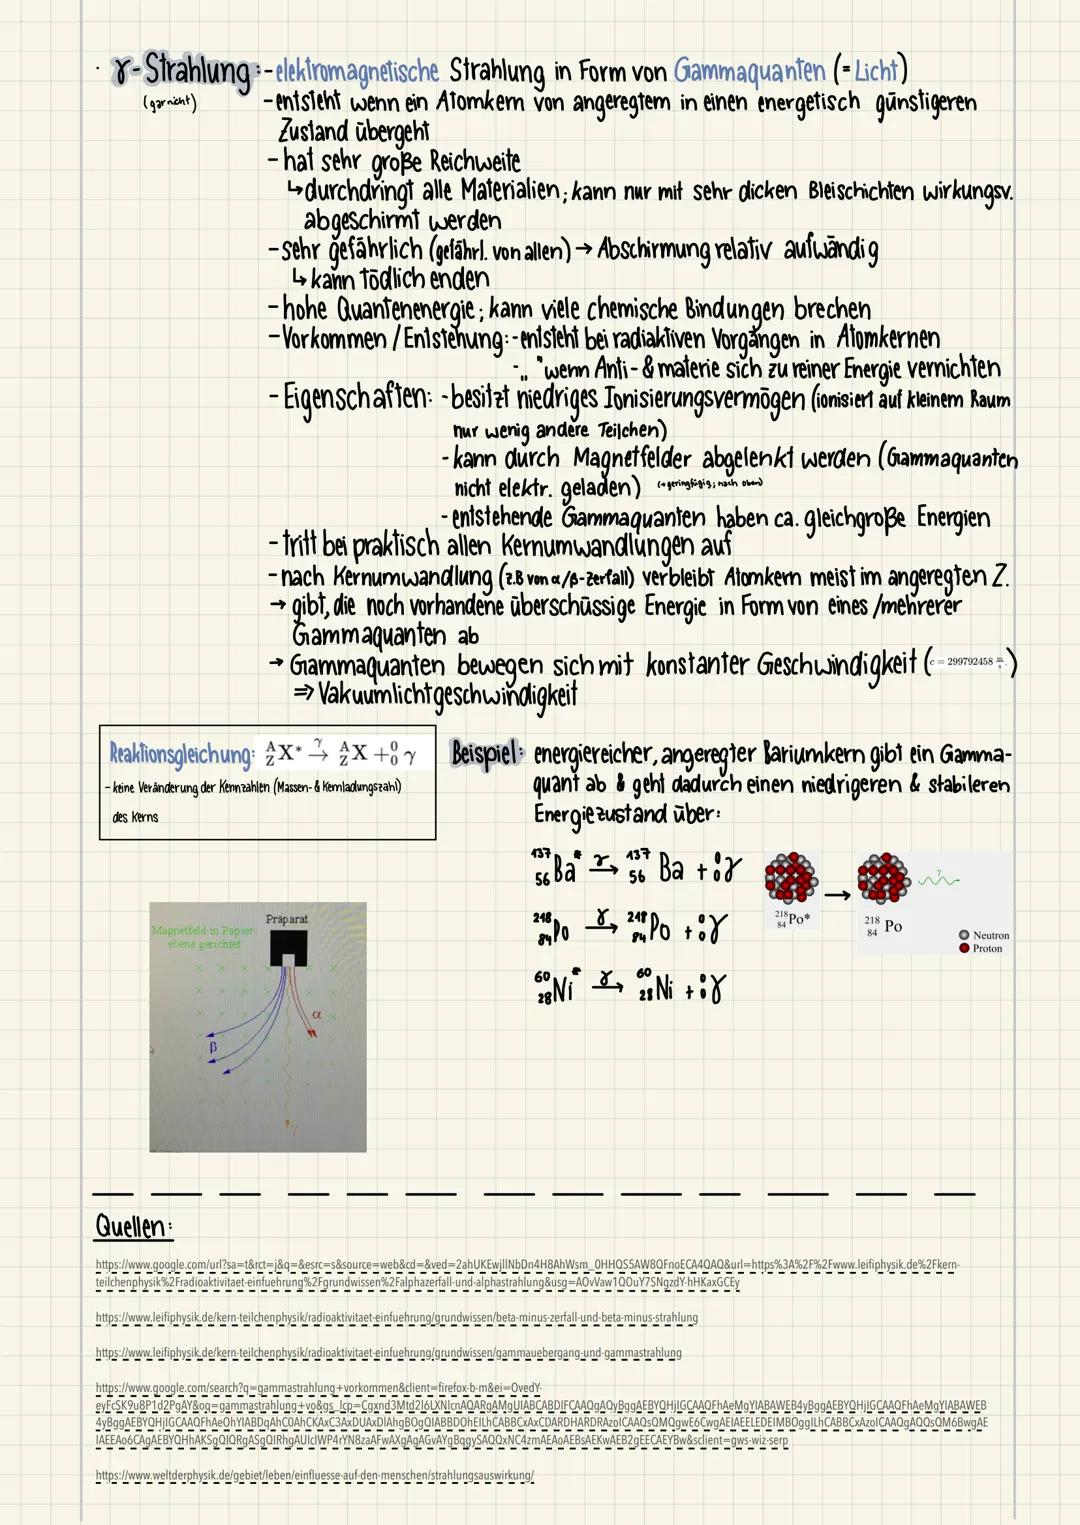 · γ-Strahlung: - elektromagnetische Strahlung in Form von Gammaquanten (= Licht)
(garnicht)
- entsteht wenn ein Atomkern von angeregtem in einen energetisch günstigeren
Zustand übergeht
- hat sehr große Reichweite
↳ durchdringt alle Materialien; kann nur mit sehr dicken Bleischichten wirkungsv.
abgeschirmt werden
- sehr gefährlich (gefährl. von allen) → Abschirmung relativ aufwändig
↳ kann tödlich enden
- hohe Quantenenergie; kann viele chemische Bindungen brechen
- Vorkommen / Entstehung: - entsteht bei radiaktiven Vorgängen in Atomkernen
- „ " wenn Anti- & materie sich zu reiner Energie vernichten
- Eigenschaften: - besitzt niedriges Ionisierungsvermögen (ionisiert auf kleinem Raum
nur wenig andere Teilchen)
- kann durch Magnetfelder abgelenkt werden (Gammaquanten
nicht elektr. geladen) (→ geringfügig; nach oben)
- entstehende Gammaquanten haben ca. gleichgroße Energien
- tritt bei praktisch allen Kernumwandlungen auf
- nach Kernumwandlung (z.B von α/β-Zerfall) verbleibt Atomkern meist im angeregten Z.
→ gibt, die noch vorhandene überschüssige Energie in Form von eines / mehrerer
Gammaquanten ab
→ Gammaquanten bewegen sich mit konstanter Geschwindigkeit (c = 299792458 m/s.)
⇒ Vakuumlichtgeschwindigkeit
Reaktionsgleichung: A Z X* γ→ A Z X + 0 0 γ
- keine Veränderung der Kennzahlen (Massen- & Kernladungszahl)
des Kerns
Beispiel: energiereicher, angeregter Bariumkern gibt ein Gamma-
quant ab & geht dadurch einen niedrigeren & stabileren
Energiezustand über:
137 56 Ba* γ→ 137 56 Ba + 0 0 γ
218 84 Po γ→ 218 84 Po + 0 0 γ
60 28 Ni* γ→ 60 28 Ni + 0 0 γ
γ
218 84 Po*
218 84 Po
Neutron
Proton
Präparat
Magnetfeld in Papier-
ebene gerichtet
α
β
γ
Quellen:
https://www.google.com/url?sa=t&rct=j&q=&esrc=s&source=web&cd=&ved=2ahUKEwjllNbDn4H8AhWsm_0HHQS5AW8QFnoECA4QAQ&url=https%3A%2F%2Fwww.leifiphysik.de%2Fkern-
teilchenphysik%2Fradioaktivitaet-einfuehrung%2Fgrundwissen%2Falphazerfall-und-alphastrahlung&usg=AOvVaw1QOuY7SNgzdY-hHKaxGCEy
https://www.leifiphysik.de/kern-teilchenphysik/radioaktivitaet-einfuehrung/grundwissen/beta-minus-zerfall-und-beta-minus-strahlung
https://www.leifiphysik.de/kern-teilchenphysik/radioaktivitaet-einfuehrung/grundwissen/gammauebergang-und-gammastrahlung
https://www.google.com/search?q=gammastrahlung+vorkommen&client=firefox-b-m&ei=OvedY-
https://www.weltderphysik.de/gebiet/leben/einfluesse-auf-den-menschen/strahlungsauswirkung/